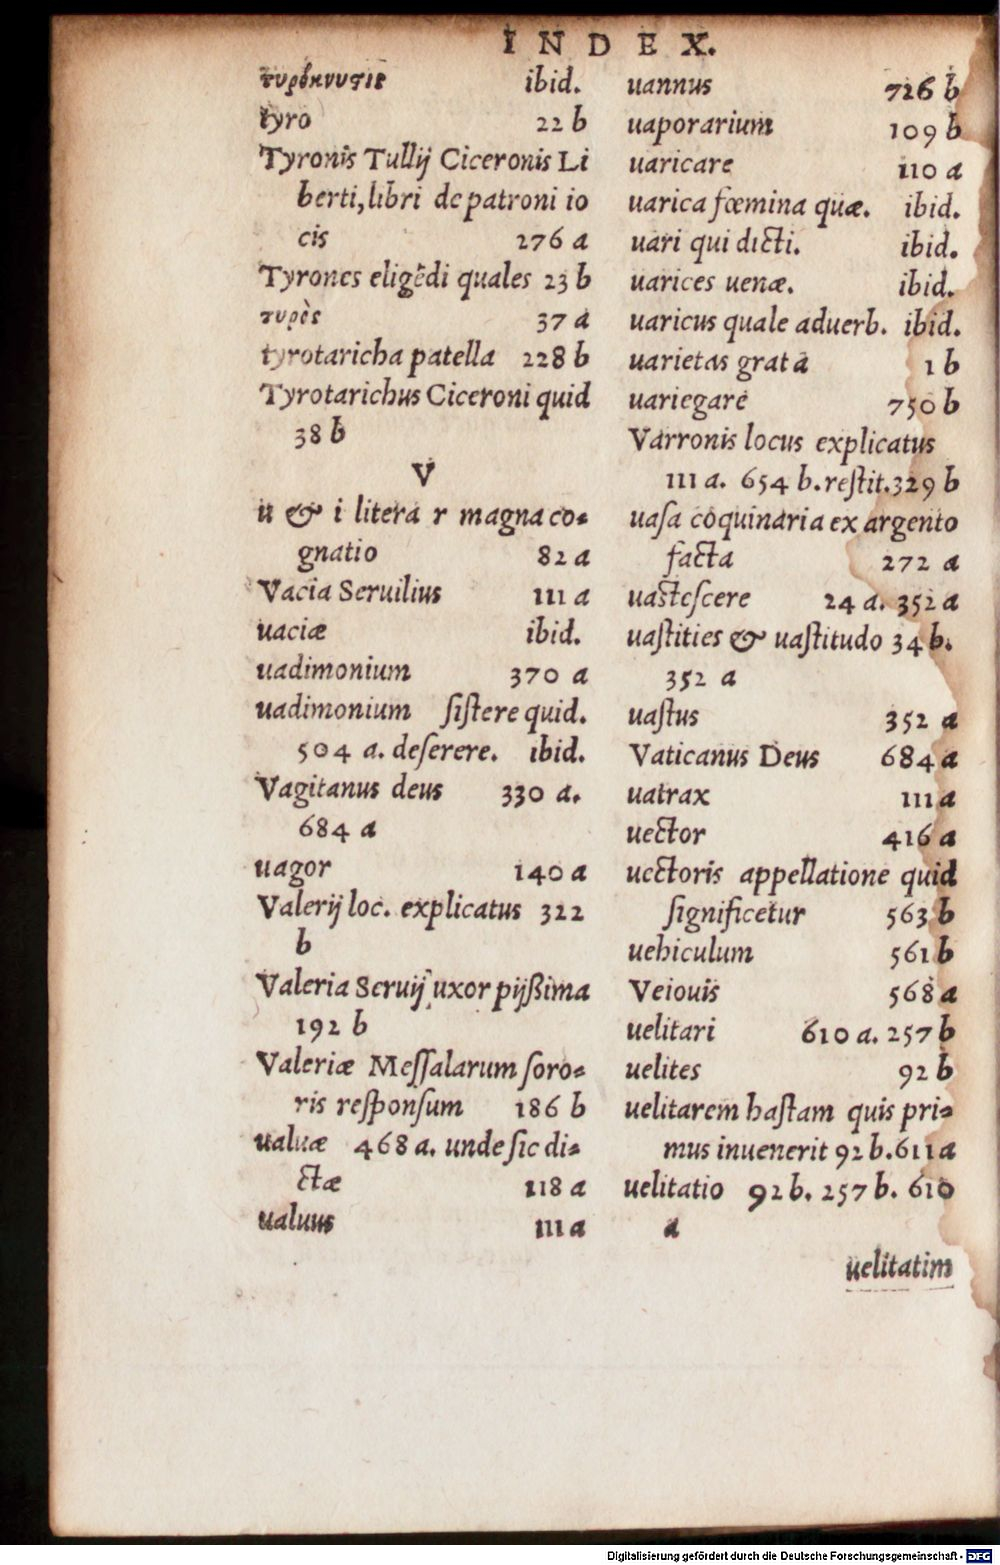 INDEX.
ibid.
tyro 22 b
Tyronis Tullij Ciceronis Li
berti, libri de patroni io
cis 276 a
Tyrones eligēdi quales 23 b
τυρὸς 37 a
tyrotaricha patella 228 b
Tyrotarichus Ciceroni quid
38 b
V
u & i litera r magna co=
gnatio 82 a
Vacia Seruilius 111 a
uaciæ ibid.
uadimonium 370 a
uadimonium ſiſtere quid.
504 a. deſerere. ibid.
Vagitanus deus 330 a.
684 a
uagor 140 a
Valerij loc. explicatus 322
b
Valeria Seruij uxor pijßima
192 b
Valeriæ Meſſalarum ſoro=
ris reſponſum 186 b
ualuæ 468 a. unde ſic di=
ctæ 118 a
ualuus 111 a
uannus 726 b
uaporarium 109 b
uaricare 110 a
uarica fœmina quæ. ibid.
uari qui dicti. ibid.
uarices uenæ. ibid.
uaricus quale aduerb. ibid.
uarietas grata 1 b
uariegare 750 b
Varronis locus explicatus
111 a. 654 b. reſtit. 329 b
uaſa coquinaria ex argento
facta 272 a
uaſteſcere 24 a. 352 a
uaſtities & uaſtitudo 34 b.
352 a
uaſtus 352 a
Vaticanus Deus 684 a
uatrax 111 a
uector 416 a
uectoris appellatione quid
ſignificetur 563 b
uehiculum 561 b
Veiouis 568 a
uelitari 610 a. 257 b
uelites 92 b
uelitarem haſtam quis pri=
mus inuenerit 92 b. 611 a
uelitatio 92 b. 257 b. 610
a
uelitatim
Digitalisierung gefördert durch die Deutsche Forschungsgemeinschaft - DFG